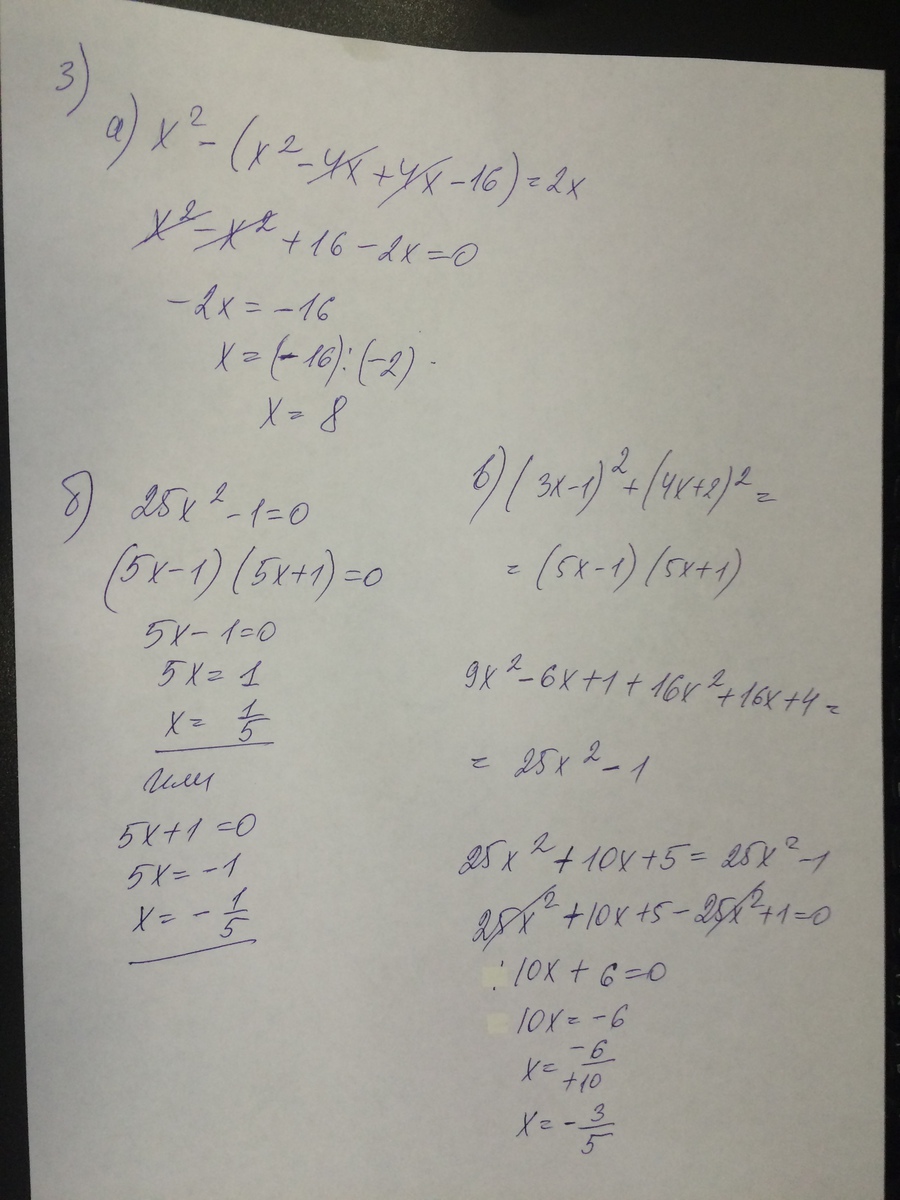 3)
а) x² - (x² - 4x + 4x - 16) = 2x
x² - x² + 16 - 2x = 0
-2x = -16
x = (-16) : (-2)
x = 8
б) 25x² - 1 = 0
(5x - 1) (5x + 1) = 0
5x - 1 = 0
5x = 1
x = 1/5
или
5x + 1 = 0
5x = -1
x = - 1/5
в) (3x - 1)² + (4x + 2)² =
= (5x - 1) (5x + 1)
9x² - 6x + 1 + 16x² + 16x + 4 =
= 25x² - 1
25x² + 10x + 5 = 25x² - 1
25x² + 10x + 5 - 25x² + 1 = 0
10x + 6 = 0
10x = -6
x = -6/+10
x = - 3/5